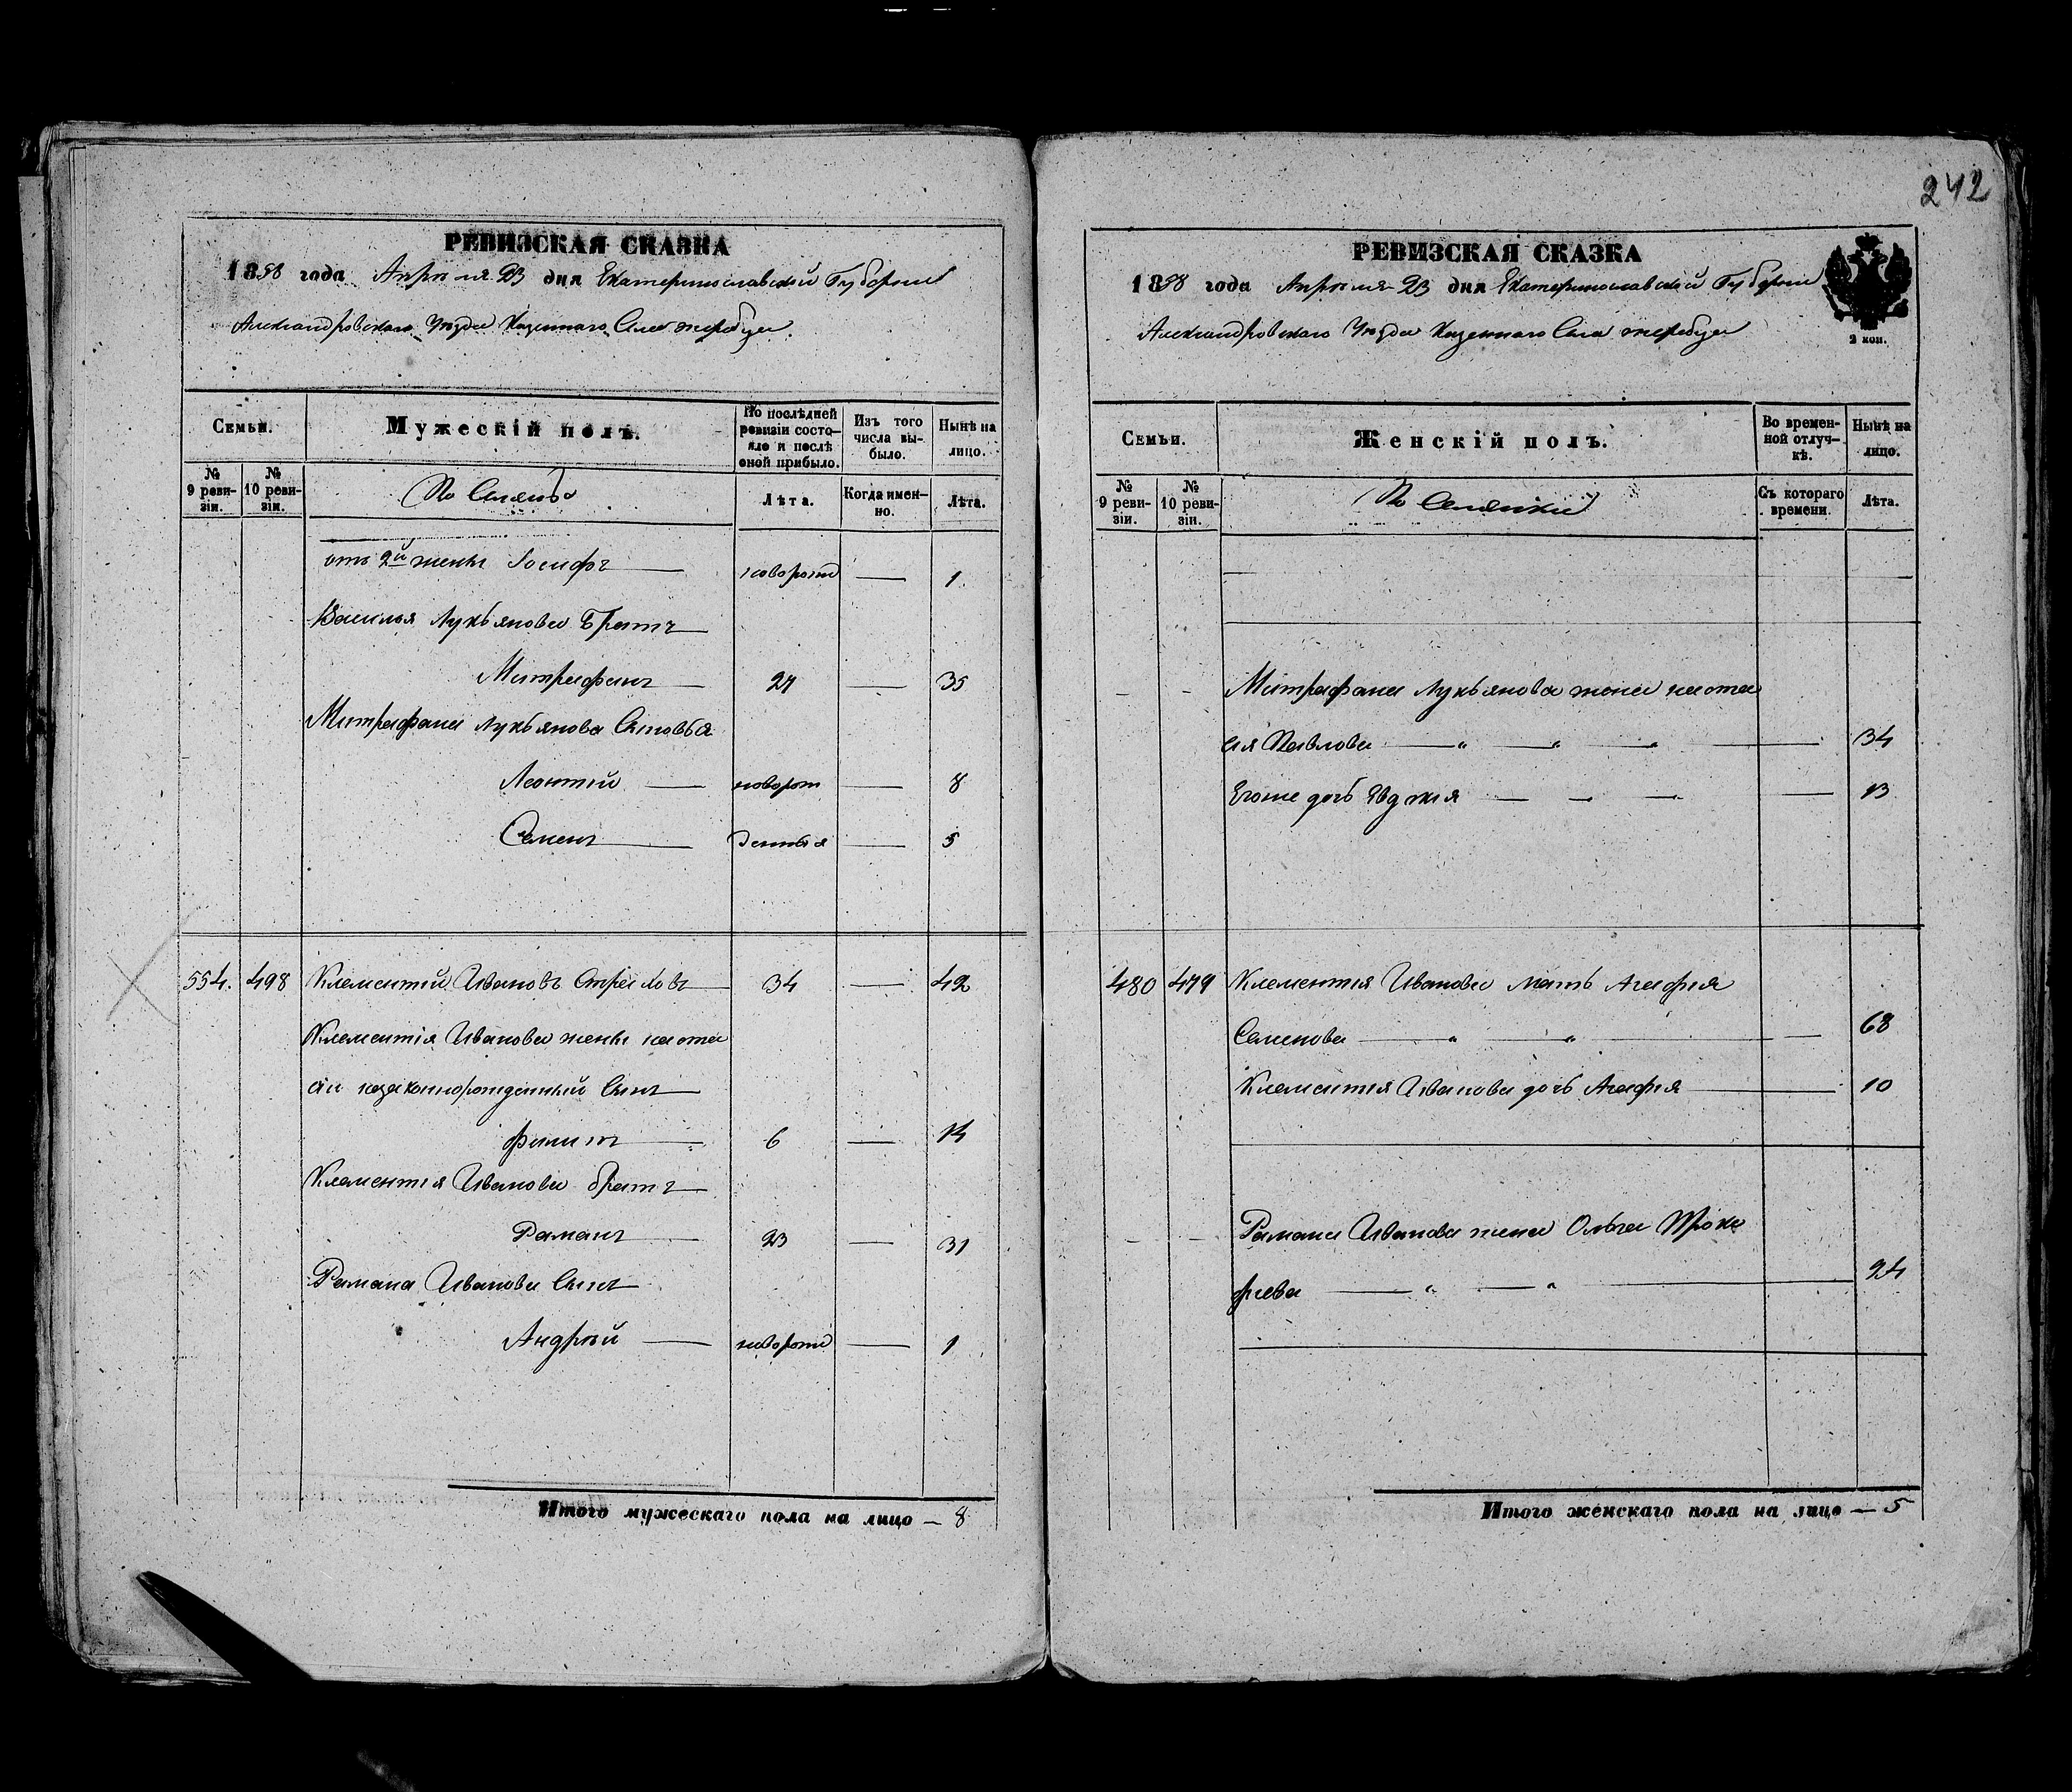 242
РЕВИЗСКАЯ СКАЗКА
1858 года Апреля 23 дня Екатеринославской Губернии
Александровскаго Уезда Казеннаго Села жеребца
Семьи.
Мужескій полъ.
По послѣдней ревизіи состояло и послѣ оной прибыло.
Изъ того числа выбыло.
Нынѣ на лицо.
№ 9 ревизіи.
№ 10 ревизіи.
Лѣта.
Когда именно.
Лѣта.
отъ 2й жены Іосифъ — новорожд — 1
Василья Лукьянова Братъ
Митрафанъ — 27 — 35
Митрафана Лукьянова Сыновья
Леонтий — новорож — 8
Семенъ — — 5
554. 498 Клементий Ивановъ Стрелковъ — 34 — 42
Клементія Иванова жены наста
сіи незаконнорожденный Сынъ
филипъ — 6 — 14
Клементія Иванова братъ
Раманъ — 23 — 31
Рамана Иванова Сынъ
Андрѣй — новорожд — 1
Итого мужескаго пола на лицо — 8
РЕВИЗСКАЯ СКАЗКА
1858 года Апреля 23 дня Екатеринославской Губернии
Александровскаго Уезда Казеннаго Села жеребца
2 коп.
Семьи.
Женскій полъ.
Во временной отлучкѣ.
Нынѣ на лицо.
№ 9 ревизіи.
№ 10 ревизіи.
Съ котораго времени.
Лѣта.
Митрафана Лукьянова жена наста
сия Павлова — " — " — " — 34
Егоже дочь Евдокия — — — — 13
480 479 Клементія Иванова мать Агафія
Семенова — " — " — 68
Клементія Иванова дочь Агафія — 10
Рамана Иванова жена Ольга Проко
фиева — " — " — 24
Итого женскаго пола на лицо — 5